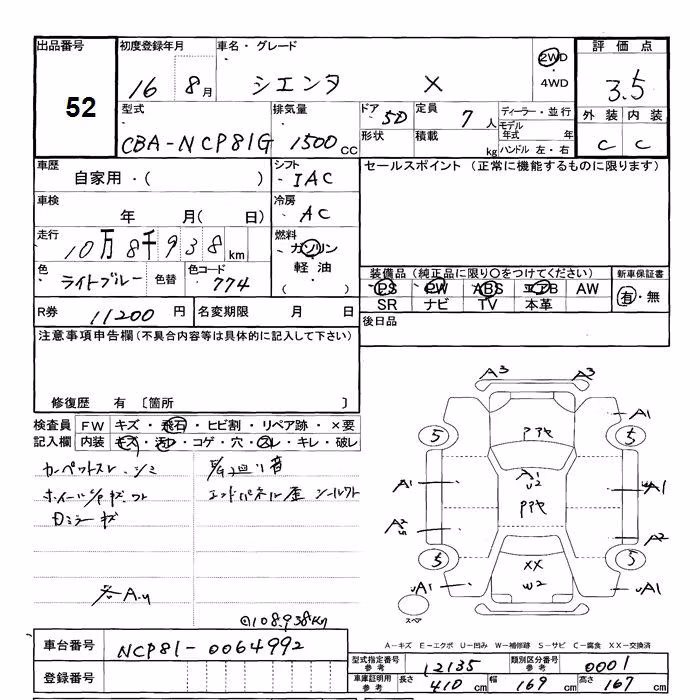 出品番号 初度登録年月 車名・グレード 評価点
52 16 8月 シエンタ X 2WD・4WD 3.5
外装 内装
C C
型式 排気量 ドア 5D 定員 7人 ディーラー・並行
CBA-NCP81G 1500cc 形状 積載 kg モデル年式 年
ハンドル 左・右
車歴 シフト セールスポイント (正常に機能するものに限ります)
自家用・( ) IAC
車検 冷房
年 月( 日) AC
走行 燃料
10万8千938km ガソリン
軽油
( )
色 ライトブルー 色替 色コード 774
装備品(純正品に限り〇をつけてください) 新車保証書
PS PW ABS エアB AW 有・無
SR ナビ TV 本革
R券 11200円 名変期限 月 日 後日品
注意事項申告欄(不具合内容等は具体的に記入して下さい)
修復歴 有 〔箇所 〕
検査員 FW キズ・飛石・ヒビ割・リペア跡・×要
記入欄 内装 キズ・汚レ・コゲ・穴・スレ・キレ・破レ
カーペットスレ・シミ
ホイールキャップキズ
Dミラーキズ
エンドパネル歪 シールワレ
各A.u
108,938Km
A3 A3
アアヤ
A1
5 5
A1 U2 A1
アアヤ
A2 A2
5 5
XX
W2
A1 A1
スペア
A-キズ E-エクボ U-凹み W-補修跡 S-サビ C-腐食 XX-交換済
車台番号 NCP81-0064992
登録番号
型式指定番号 参考 12135 類別区分番号 参考 0001
車庫証明用 参考 長さ 410cm 幅 169cm 高さ 167cm